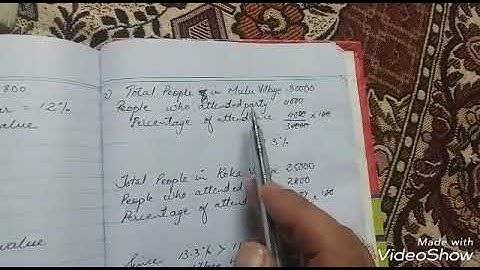 1800
= 12%
value
value
Total People in Mulu Village 30000
People who attended party 4000
Percentage of attendance 4000/30000 × 100
3%
Total People in Koka Village 25000
People who attended 2800
Percentage of × 100
Since 13.3% > 11
Made with
VideoShow